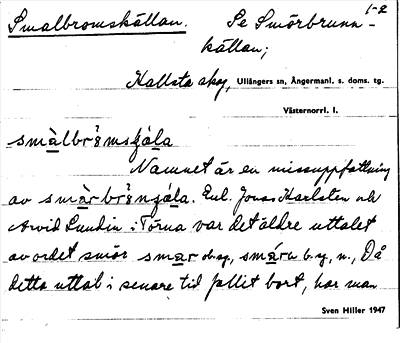 Smalbromskällan. Se Smörbrunn- 1-2
källan;
Kallsta skog, Ullångers sn, Ångermanl. s. doms. tg.
Västernorrl. l.
smàlbrömsʃä́la
Namnet är en missuppfattning
av smàrbrönʃä́la. Enl. Jonas Karlsten och
Arvid Lundin i Törna var det äldre uttalet
av ordet smör smar obsg, smárn b.sg, n., Då
detta uttal i senare tid fallit bort, har man
Sven Hiller 1947